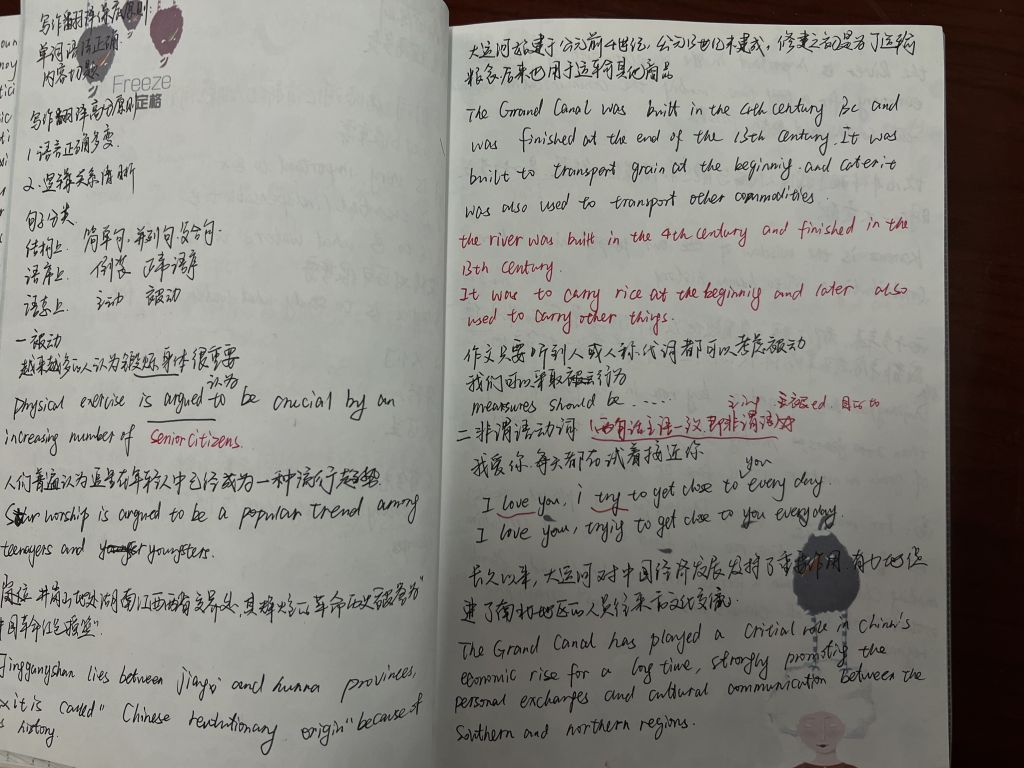 写作翻译保底原则:
单词语法正确.
内容切题.
Freeze
定格
写作翻译高分原则
1.语言正确多变.
2.逻辑关系清晰
句子分类.
结构上. 简单句,并列句.复合句.
语序上. 倒装 正常语序
语态上. 主动 被动
一被动
越来越多的人认为锻炼身体很重要
认为
Physical exercise is argued to be crucial by an
increasing number of senior citizens.
人们普遍认为追星在年轻人中已经成为一种流行趋势.
Star worship is argued to be a popular trend among
teenagers and youngsters.
井冈山地处湖南江西两省交界处,其
中国革命红色摇篮".
Jinggangshan lies between jiangxi and hunna provinces,
it is called " Chinese revolutionary origin" because of
history.
大运河始建于公元前4世纪,公元13世纪末建成,修建之初是为了运输
粮食后来也用于运输其他商品
The Grand Canal was built in the 4th century BC and
was finished at the end of the 13th century. It was
built to transport grain at the beginning. and later it
was also used to transport other commodities.
the river was built in the 4th century and finished in the
13th century.
It was to carry rice at the beginnig and later also
used to carry other things.
作文只要听到人或人称代词都可以考虑被动
我们可以采取行为
mearsures should be ......
二 非谓语动词 (两句话主语一致即非谓语)
我爱你.每天都在试着接近你
you
I love you, i try to get close to every day.
I love you, trying to get close to you everyday.
长久以来,大运河对中国经济发展发挥了重要作用.有力地促
进了南北地区的人员往来和文化交流.
The Grand Canal has played a critial role in China's
economic rise for a long time, strongly promoting the
personal exchanges and cultural communication between the
Southern and northern regions.